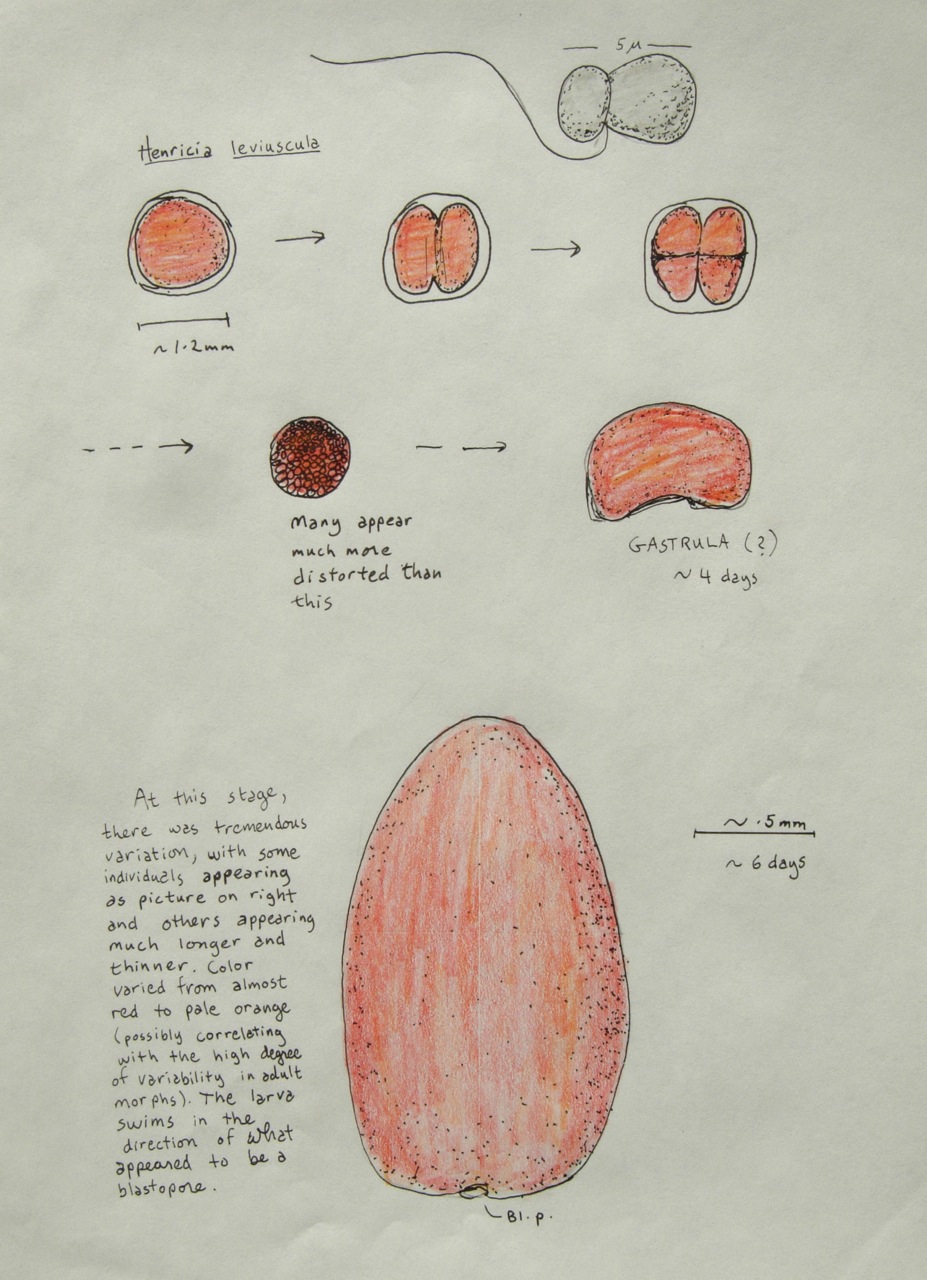 5 µ
Henricia leviuscula
~ 1.2mm
Many appear
much more
distorted than
this
GASTRULA (?)
~ 4 days
At this stage,
there was tremendous
variation, with some
individuals appearing
as picture on right
and others appearing
much longer and
thinner. Color
varied from almost
red to pale orange
(possibly correlating
with the high degree
of variability in adult
morphs). The larva
swims in the
direction of what
appeared to be a
blastopore.
~ .5mm
~ 6 days
Bl. p.